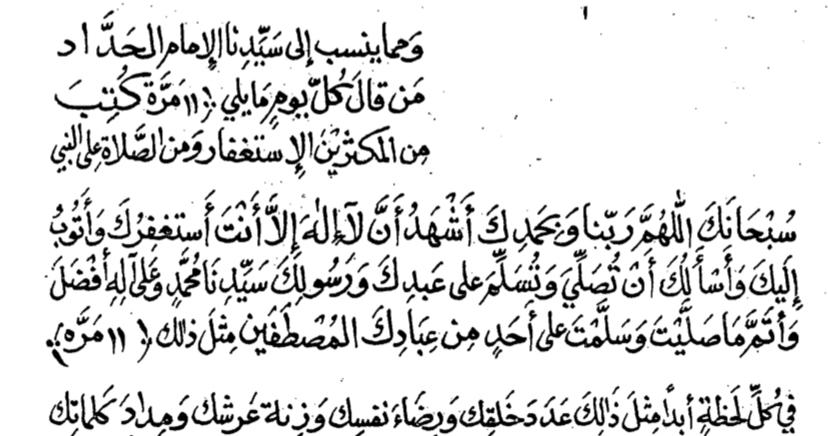 وَمما ينسب إلى سَيِّدِنا الإمام الحَدَّاد
مَن قالَ كُلّ يومٍ مَا يلي (١١ مَرَّة) كُتِبَ
مِن المكثرِيْنَ الإستغفار وَمن الصَّلاة على النبي
سُبْحَانَكَ اللهُمَّ رَبّنا وَبِحَمدِكَ أَشْهَدُ أَنَّ لآإلٰهَ إلاَّ أَنْتَ أَستغفِرُكَ وَأَتُوبُ
إِلَيكَ وَأَسْأَلُكَ أَنْ تُصَلِّيَ وَتُسَلِّمَ على عَبدِكَ وَرَسُولِكَ سَيِّدِنَا مُحَمَّدٍ وَعَلى آلِهِ أَفْضَلَ
وَأَتَمَّ مَا صَلَّيْتَ وَسَلَّمْتَ على أَحَدٍ مِن عِبَادِكَ المُصْطَفَين مِثلَ ذالك (١١ مَرَّه).
في كُلِّ لَحظةٍ أبداً مِثلَ ذَالِكَ عَدَدَ خَلقِك وَرِضَاءَ نفسِك وَزِنةَ عَرشك وَمِدادَ كلماتِك